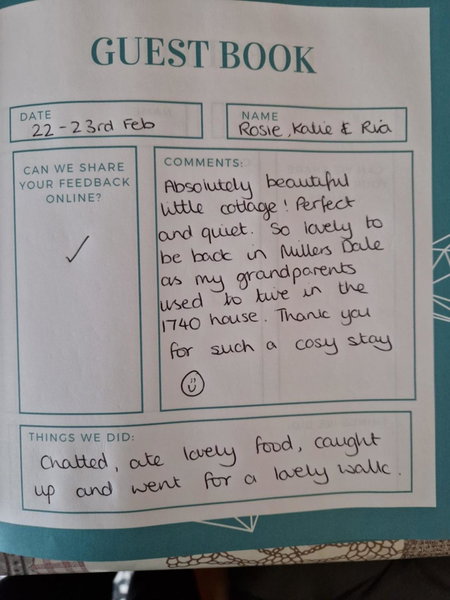 GUEST BOOK
DATE
22 - 23rd Feb
NAME
Rosie, Katie & Ria
CAN WE SHARE
YOUR FEEDBACK
ONLINE?
✓
COMMENTS:
Absolutely beautiful
little cottage! Perfect
and quiet. So lovely to
be back in Millers Dale
as my grandparents
used to live in the
1740 house. Thank you
for such a cosy stay
☺
THINGS WE DID:
Chatted, ate lovely food, caught
up and went for a lovely walk.